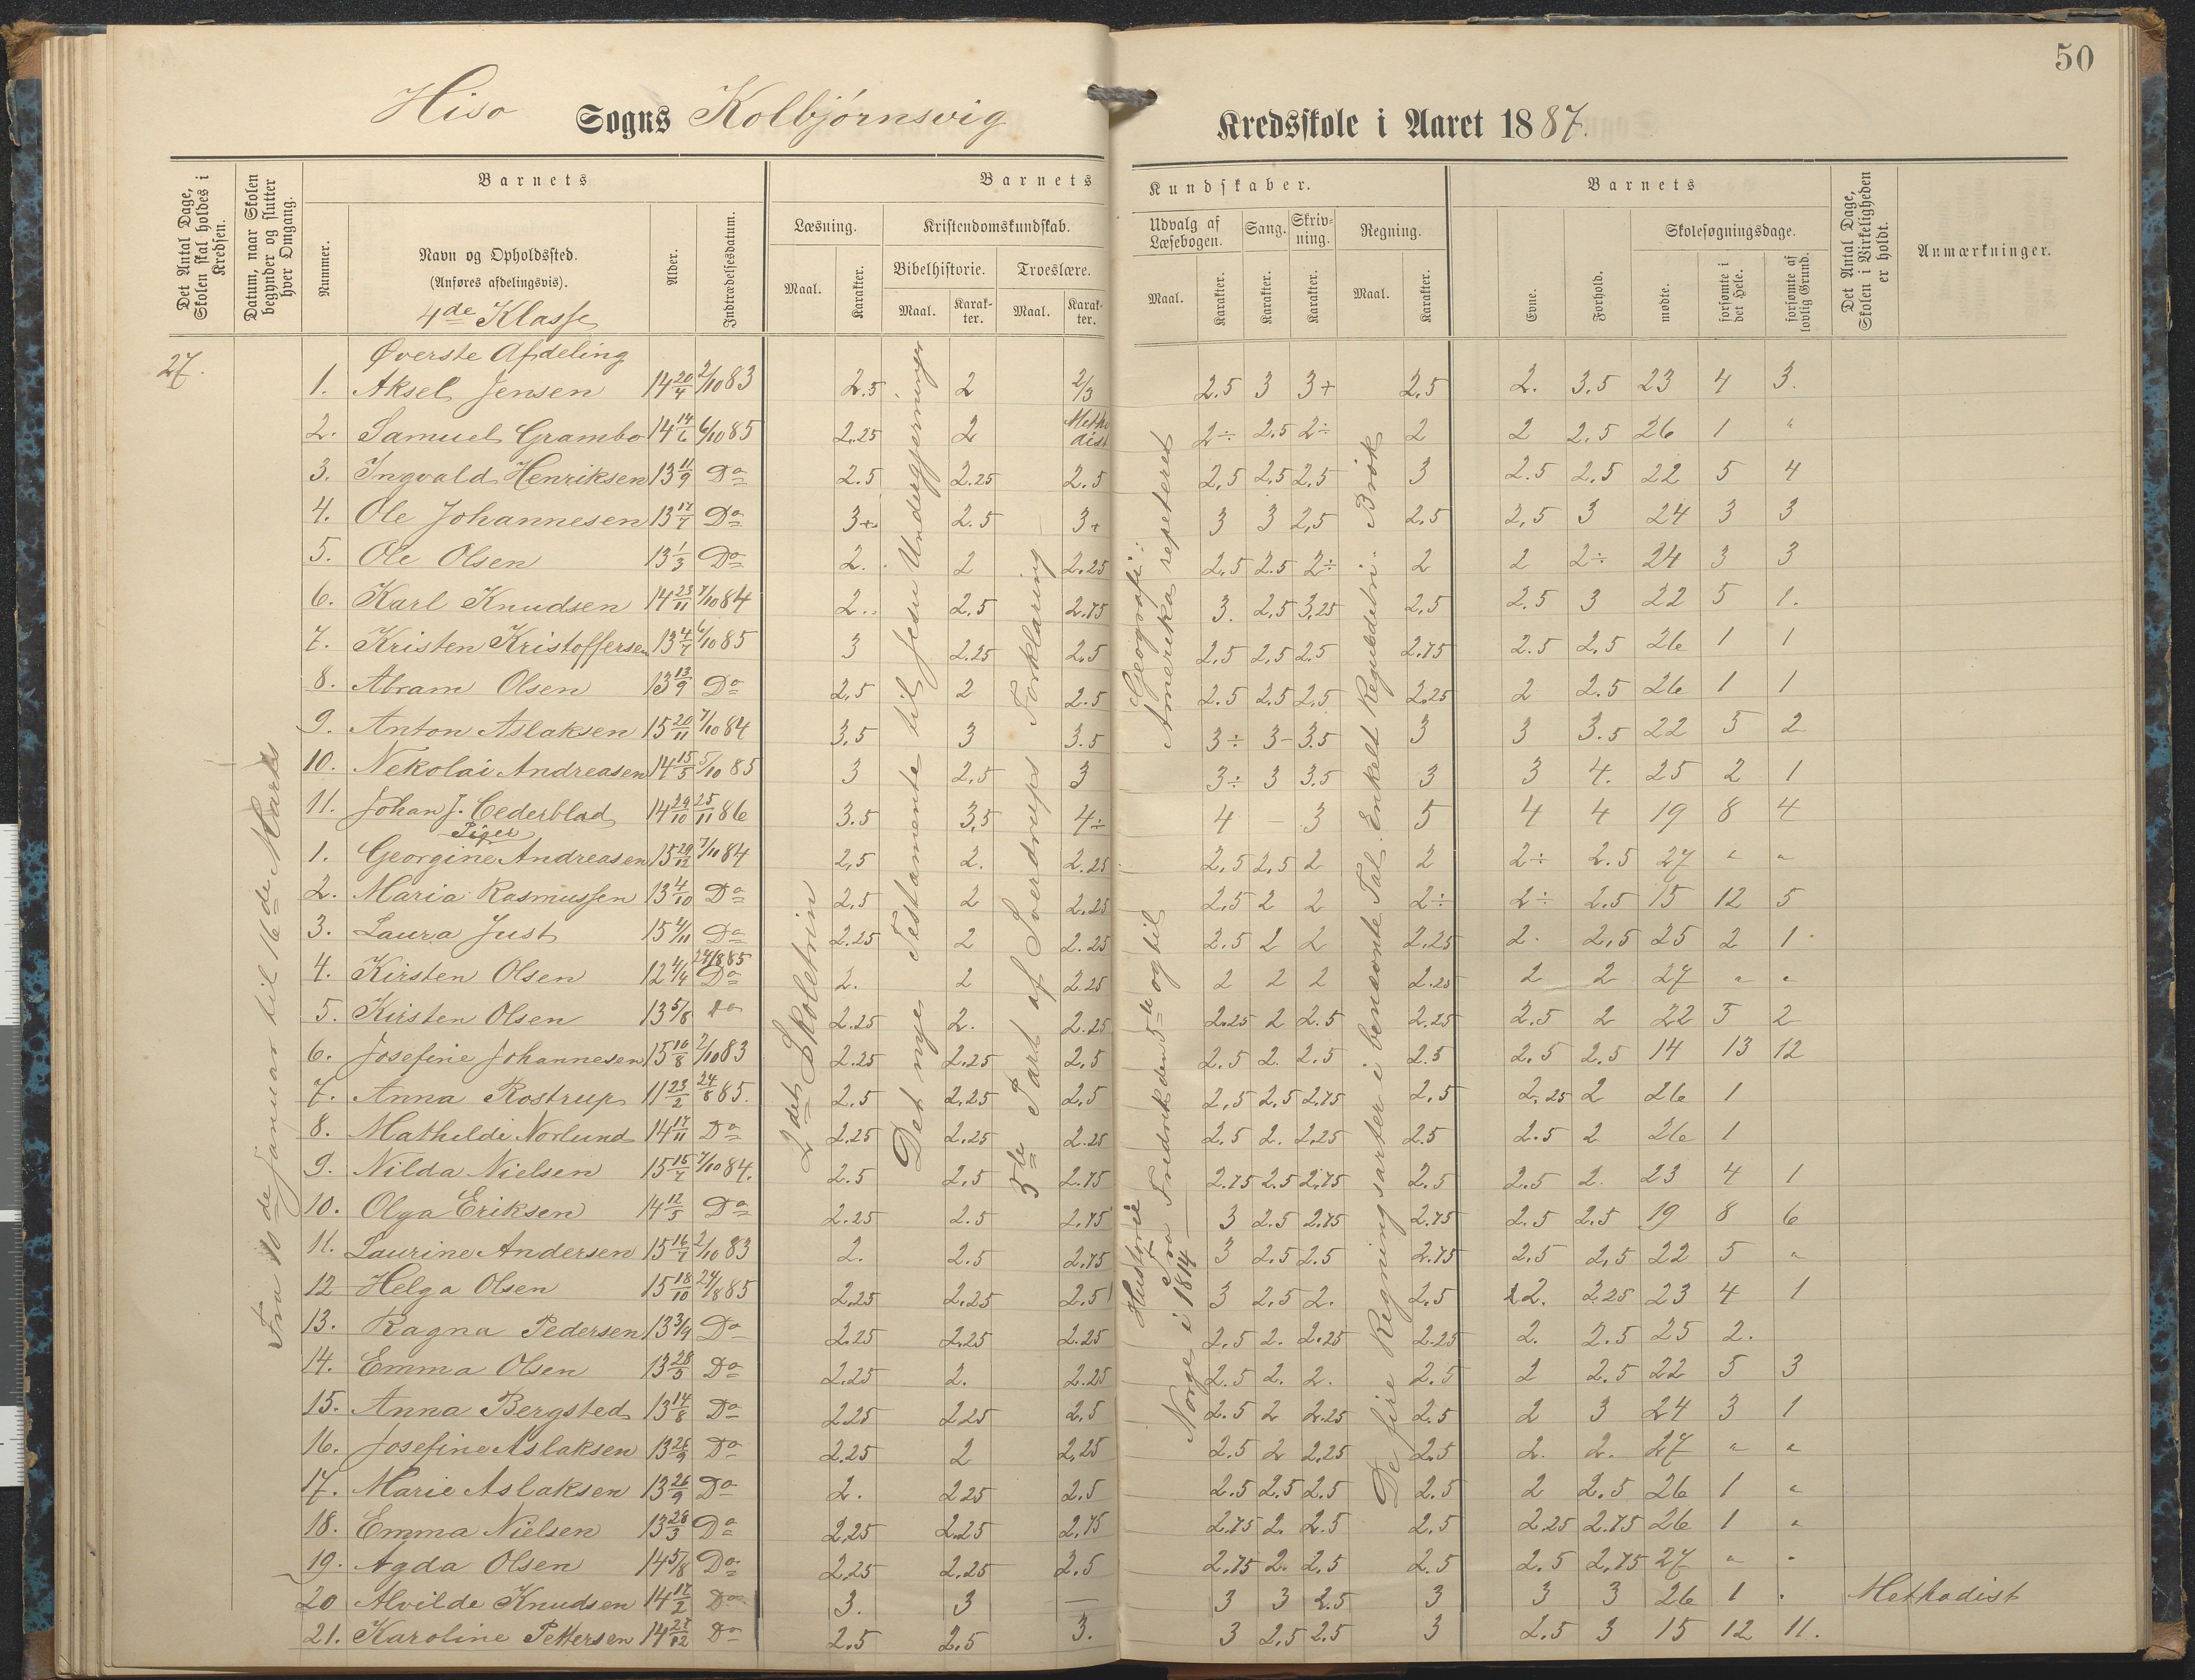 50
Hisø Sogns Kolbjørnsvig Kredsskole i Aaret 1887.
Det Antal Dage, Skolen skal holdes i Kredsen.
Datum, naar Skolen begynder og slutter hver Omgang.
Barnets
Nummer.
Navn og Opholdssted.
(Anføres afdelingsvis).
4de Klasse
Alder.
Indtrædelsesdatum.
Barnets Kundskaber.
Læsning.
Maal.
Karakter.
Kristendomskundskab.
Bibelhistorie.
Maal.
Karakter.
Troeslære.
Maal.
Karakter.
Udvalg af Læsebogen.
Maal.
Karakter.
Sang.
Karakter.
Skrivning.
Karakter.
Regning.
Maal.
Karakter.
Barnets
Evne.
Forhold.
Skolesøgningsdage.
mødte.
forsømte i det Hele.
forsømte af lovlig Grund.
Det Antal Dage, Skolen i Virkeligheden er holdt.
Anmærkninger.
27.
Fra 10de Januar til 16de Marts
2det Skoletrin
Det nye Testamente til Jesu Undergjerninger
3de Part af Sverdrups Forklaring
Geografi: Amerika repeteret
Historie fra Fredrik den 5te og til Norge i 1814
De fire Regningsarter i benævnte Tal. Enkelt Reguladetri. Brøk
Øverste Afdeling
1. Aksel Jensen 14 20/4 2/10 83 2.5 2 2/3 2.5 3 3+ 2,5 2. 3.5 23 4 3.
2. Samuel Grambo 14 14/6 6/10 85 2.25 2 Methodist 2÷ 2.5 2÷ 2 2 2.5 26 1 "
3. Ingvald Henriksen 13 11/9 Do 2.5 2.25 2.5 2,5 2,5 2,5 3 2.5 2,5 22 5 4
4. Ole Johannesen 13 17/7 Do 3+ 2.5 3+ 3 3 2,5 2,5 2,5 3 24 3 3
5. Ole Olsen 13 1/3 Do 2. 2 2.25 2,5 2.5 2÷ 2 2 2÷ 24 3 3
6. Karl Knudsen 14 23/11 7/10 84 2. 2.5 2.75 3. 2,5 3,25 2,5 2.5 3 22 5 1.
7. Kristen Kristoffersen 13 4/7 6/10 85 3 2.25 2,5 2,5 2,5 2.5 2.75 2.5 2,5 26 1 1
8. Abram Olsen 13 13/9 Do 2,5 2 2.5 2.5 2.5 2,5 2,25 2 2.5 26 1 1
9. Anton Aslaksen 15 20/11 7/10 84 3,5 3 3.5 3÷ 3- 3.5 3 3 3.5 22 5 2
10. Nekolai Andreasen 14 15/5 5/10 85 3 2,5 3 3÷ 3 3.5 3 3 4. 25 2 1
11. Johan J. Cederblad 14 29/10 25/11 86 3.5 3,5 4÷ 4 - 3 5 4 4 19 8 4
Piger
1. Georgine Andreasen 15 29/12 7/10 84 2,5 2. 2.25 2,5 2,5 2 2 2÷ 2.5 27 " "
2. Maria Rasmussen 13 4/10 Do 2,5 2 2,25 2,5 2 2 2÷ 2÷ 2.5 15 12 5
3. Laura Just 15 4/11 Do 2.25 2 2.25 2.5 2 2 2,25 2. 2,5 25 2 1
4. Kirsten Olsen 12 4/4 24/8 85 Do 2. 2 2.25 2 2 2 2.25 2 2 27 " "
5. Kirsten Olsen 13 5/8 Do 2.25 2. 2.25 2.25 2 2.5 2.25 2.5 2 22 5 2
6. Josefine Johannesen 15 16/8 2/10 83 2.25 2,25 2,5 2.5 2. 2.5 2.5 2,5 2.5 14 13 12
7. Anna Rostrup 11 23/2 24/8 85. 2.5 2,25 2,5 2,5 2,5 2.75 2,5 2,25 2 26 1
8. Mathilde Norlund 14 17/11 Do 2.25 2.25 2.25 2.5 2. 2,25 2.5 2.5 2 26 1
9. Nilda Nielsen 15 15/7 7/10 84. 2.5 2,5 2.75 2.75 2.5 2,75 2,5 2.5 2. 23 4 1
10. Olga Eriksen 14 12/5 Do 2.25 2.5 2,75 3 2.5 2.75 2.75 2.5 2.5 19 8 6
11. Laurine Andersen 15 16/7 2/10 83 2. 2.5 2,75 3 2.5 2.5 2.75 2.5 2,5 22 5 "
12 Helga Olsen 15 18/10 24/8 85 2,25 2,25 2.5 3 2,5 2. 2.5 2. 2.25 23 4 1
13. Ragna Pedersen 13 3/9 Do 2.25 2.25 2.25 2.5 2. 2,25 2.25 2. 2.5 25 2.
14. Emma Olsen 13 28/5 Do 2.25 2. 2.25 2.5 2. 2. 2.5 2 2.5 22 5 3
15. Anna Bergsted 13 14/8 Do 2.25 2.25 2,5 2.5 2 2.25 2.5 2 3 24 3 1
16. Josefine Aslaksen 13 26/9 Do 2.25 2 2,25 2.5 2 2,25 2.5 2. 2. 27 " "
17. Marie Aslaksen 13 26/9 Do 2. 2.25 2,5 2.5 2,5 2.5 2.5 2 2,5 26 1 "
18. Emma Nielsen 13 28/3 Do 2,25 2.25 2,75 2.75 2. 2.5 2,5 2.25 2.75 26 1 "
19. Agda Olsen 14 5/8 Do 2,25 2.25 2,5 2,75 2. 2,5 2.5 2,5 2,75 27 " "
20 Alvilde Knudsen 14 17/2 Do 3. 3 — 3 3 2.5 3 3 3 26 1 " Methodist
21. Karoline Pettersen 14 27/12 Do 2.5 2.5 3. 3 2,5 2.5 3 2.5 3 15 12 11.